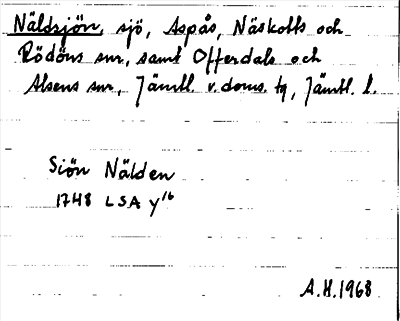 Näldsjön, sjö, Aspås, Näskotts och
Rödöns snr, samt Offerdals och
Alsens snr, Jämtl. v. doms. tg, Jämtl. l.
Siön Nälden
1748 LSA y16
A.H. 1968